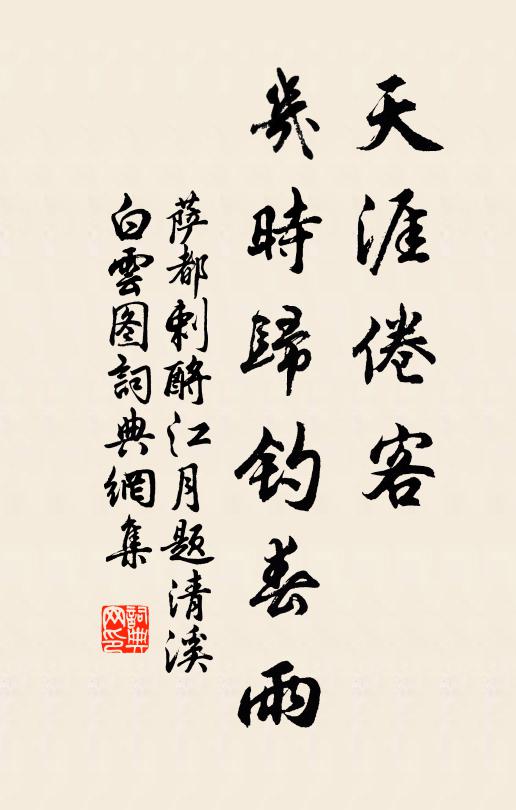 天涯倦客
幾時歸釣春雨
薩都剌酹江月題清溪
白雲图詞典網集
詞典网印